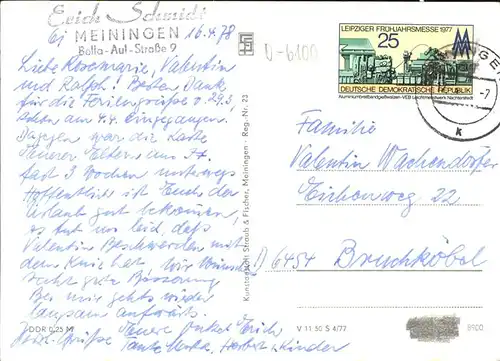 Erich Schmidt
MEININGEN 16.4.78
Bella-Aul-Straße 9
Liebe Rosemarie, Valentin
und Ralph! Besten Dank
für die Feriengrüße v. 29.3,
4.4. eingegangen.
Dagegen war die Karte
Deiner Eltern aus
fast 3 Wochen unterwegs
Hoffentlich ist Euch der
Urlaub gut bekommen,
es tut uns leid, daß
Valentin Beschwerden mit
dem hat. Wir wünschen
recht gute Besserung
Bei mir geht's wieder
langsam aufwärts.
Herzl. Grüße Euere Onkel Erich
Tante Herta, Herbert u Kinder
DDR 0,25 M
Kunstanstalt Straub & Fischer, Meiningen - Reg.-Nr. 23
V 11 50 S 4/77
8900
LEIPZIGER FRÜHJAHRSMESSE 1977
25
DEUTSCHE DEMOKRATISCHE REPUBLIK
Aluminiumbreitbandgießwalzen-VEB Leichtmetallwerk Nachterstedt
-7
K
Familie
Valentin Wachendörfer
Eichenweg 22
D 6454 Bruchköbel